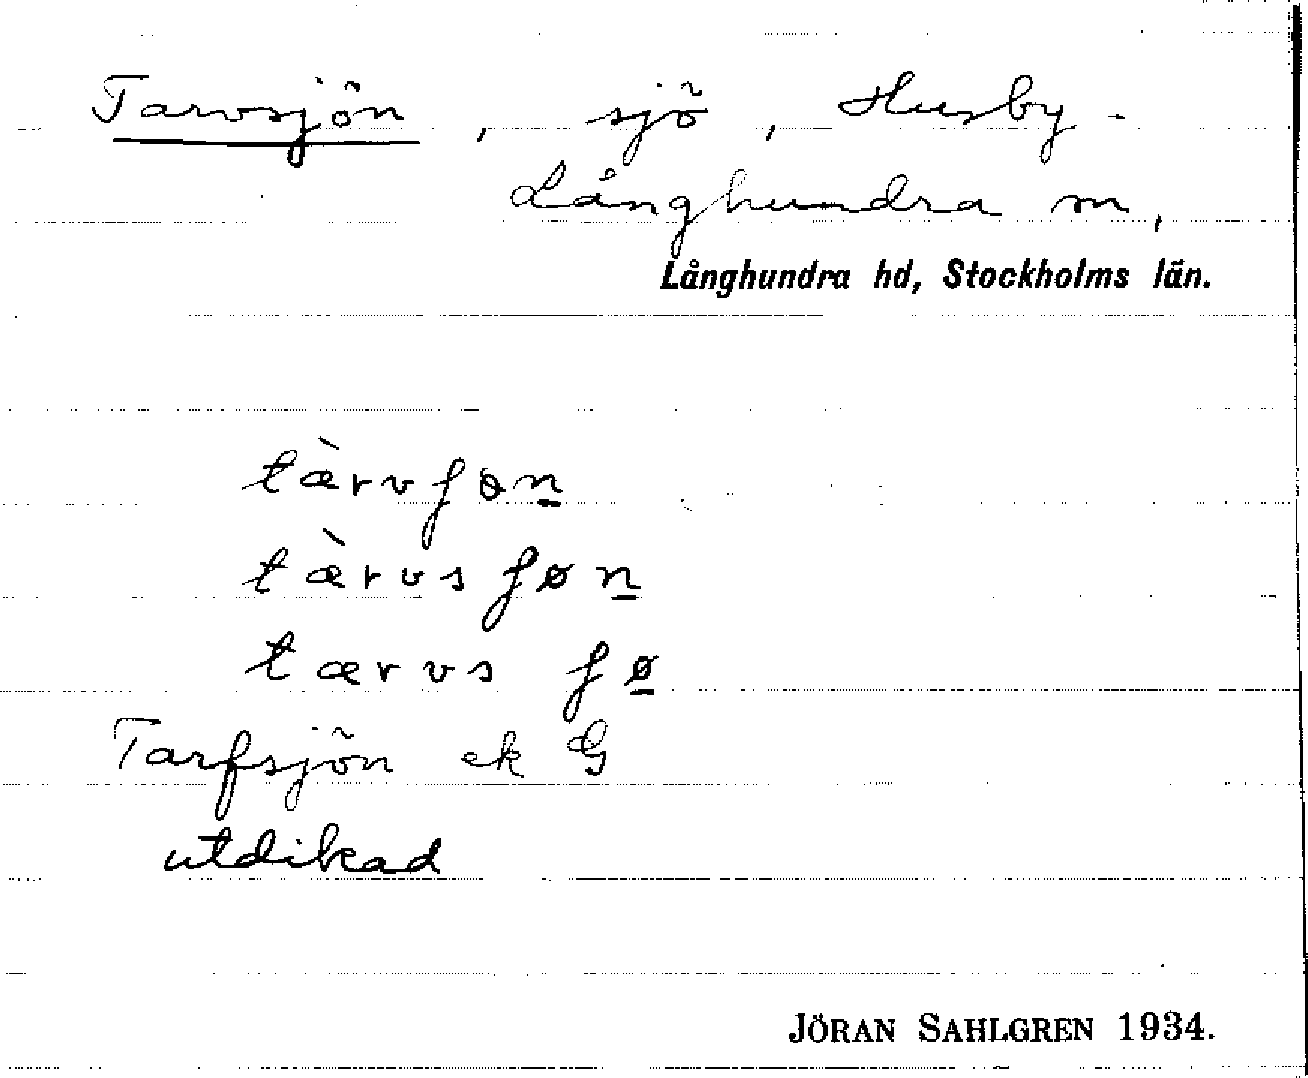 Tarvsjön, sjö, Husby-
Långhundra sn,
Långhundra hd, Stockholms län.
tæ̀rvʃøn̲
tæ̀rvsʃøn̲
tærvs ʃø̲
Tarfsjön ek G
utdikad
JÖRAN SAHLGREN 1934.